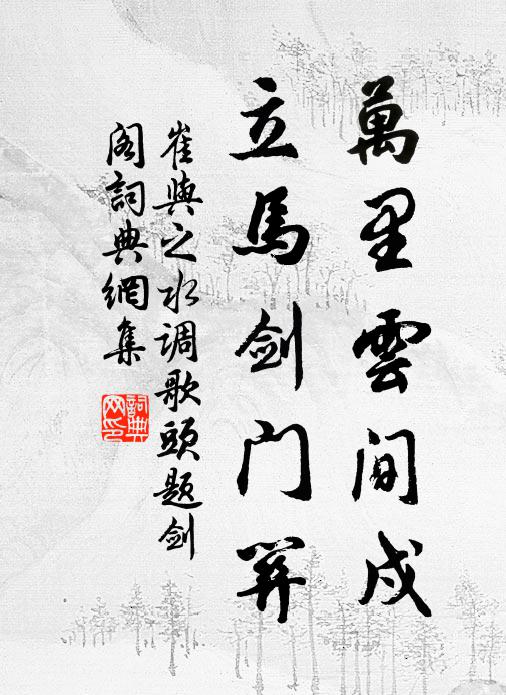 萬里雲间戍
立馬剑门关
崔與之水调歌頭题剑
阁詞典網集
詞典网印